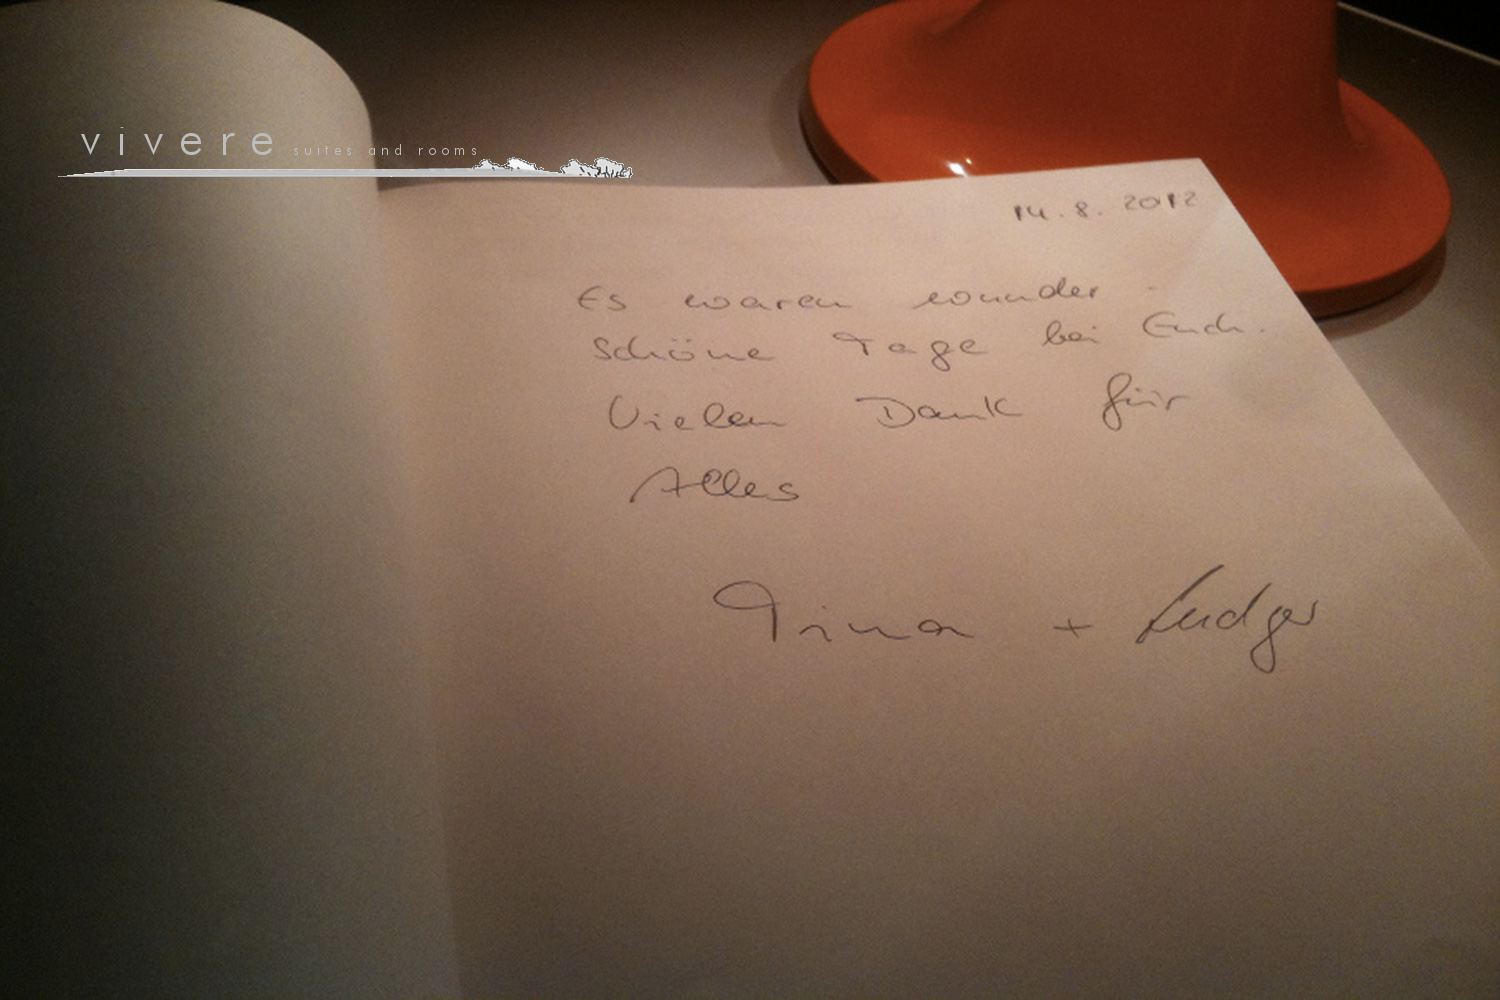 vivere suites and rooms
14.8.2012
Es waren wunder-
schöne Tage bei Euch.
Vielen Dank für
Alles
Tina + Ludger